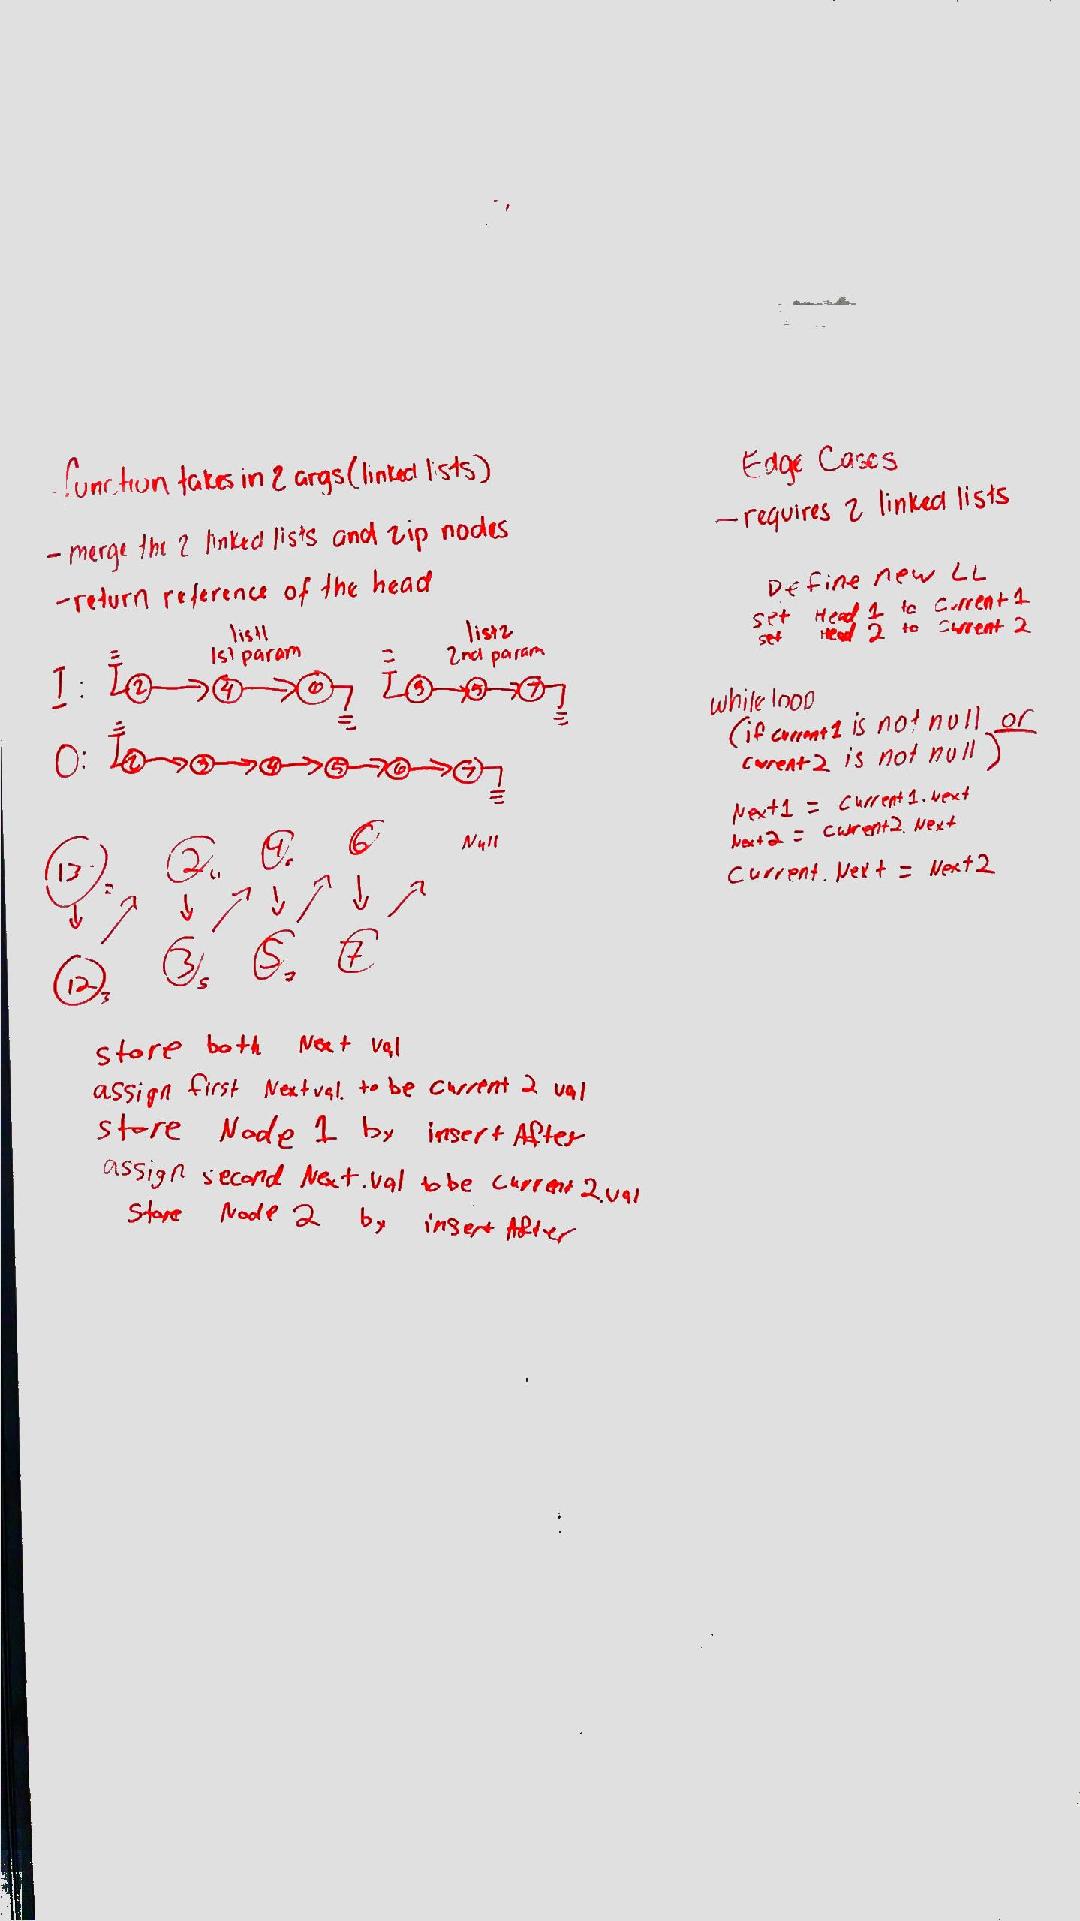 function takes in 2 args (linked lists)
- merge the 2 linked lists and zip nodes
- return reference of the head
list1
1st param
list2
2nd param
I: 2 4 6 3 5 7
O: 2 3 4 5 6 7
13 2 4 6 Null
12 3 5 7
store both Next val
assign first Next val. to be current 2 val
store Node 1 by insert After
assign second Next.val to be current 2.val
Store Node 2 by insert After
Edge Cases
- requires 2 linked lists
Define new LL
set Head 1 to Current 1
set Head 2 to Current 2
while loop
(if current1 is not null or
current2 is not null)
Next1 = Current1.Next
Next2 = Current2.Next
Current.Next = Next2